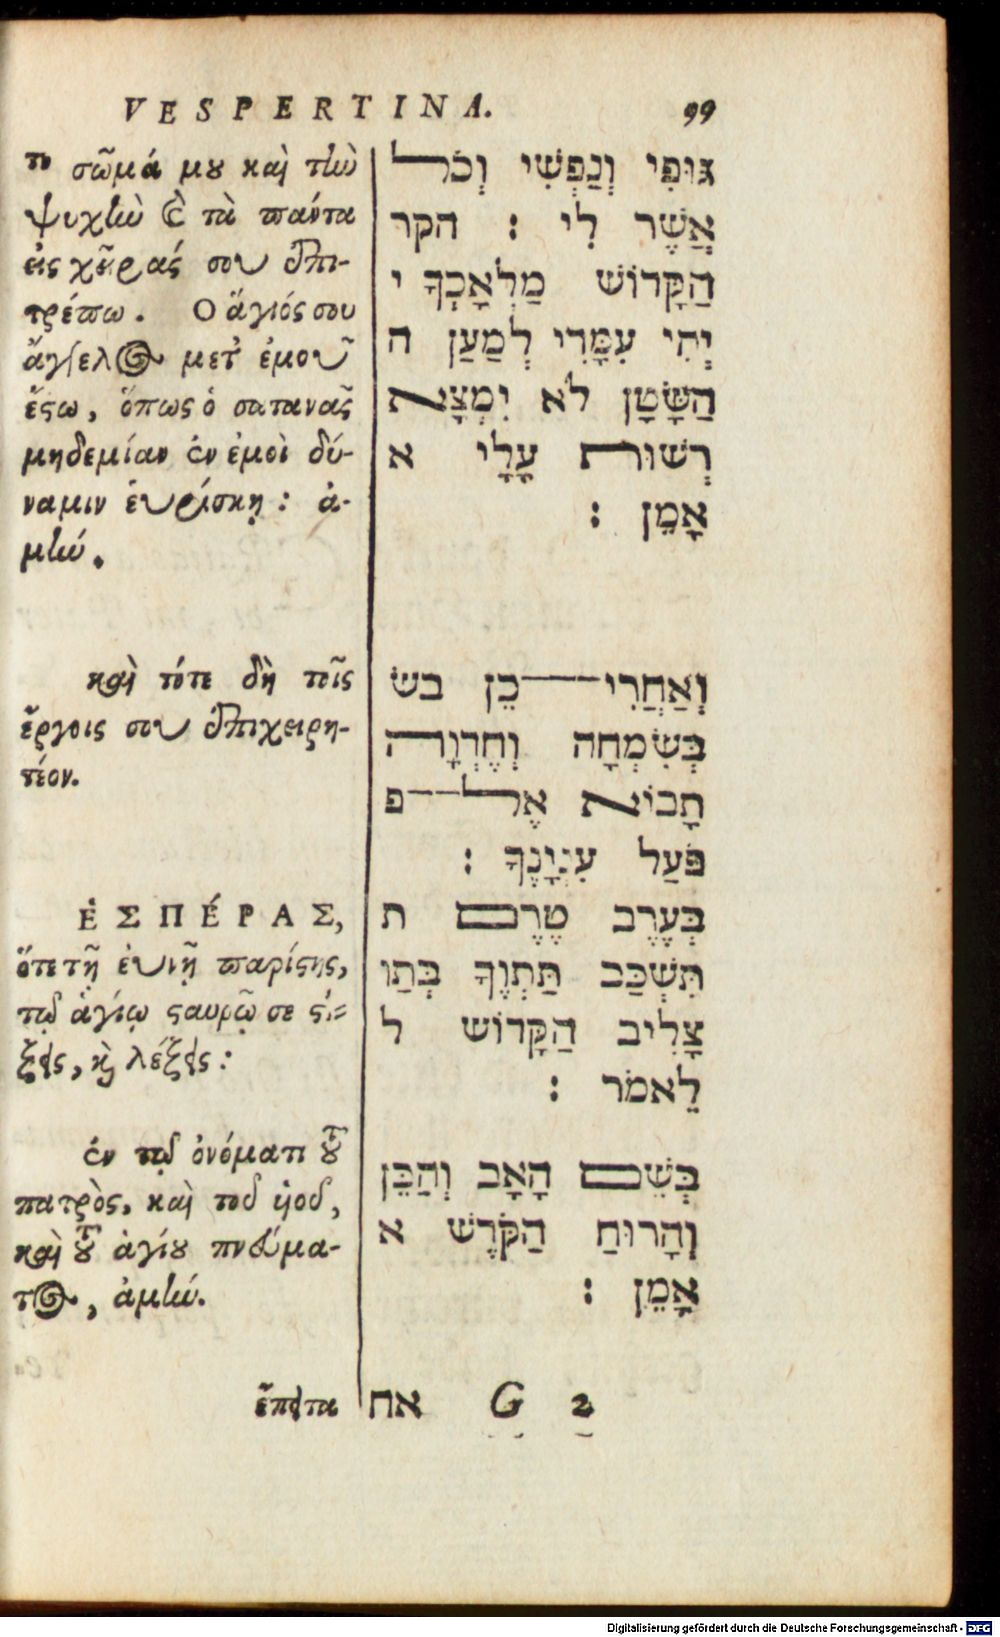 VESPERTINA. 99
το σῶμά μου καὶ τὴν
ψυχὴν καὶ τὰ πάντα
εἰς χεῖράς σου ἐπι-
τρέπω. Ο ἅγιός σου
ἄγγελος μετ' ἐμοῦ
ἔστω, ὅπως ὁ σατανᾶς
μηδεμίαν ἐν ἐμοὶ δύ-
ναμιν ἑυρίσκῃ: ἀ-
μήν.
καὶ τότε δὴ τοῖς
ἔργοις σου ἐπιχειρη-
τέον.
ἙΣΠΈΡΑΣ,
ὅτε τῇ ἐυνῇ παρίστης,
τῷ ἁγίῳ σταυρῷ σε στί-
ξεις, καὶ λέξεις:
ἐν τῷ ὀνόματι τοῦ
πατρὸς, καὶ τοῦ ὑοῦ,
καὶ τοῦ ἁγίου πνεύμα-
τος, ἀμήν.
ἔπειτα
גּוּפִי וְנַפְשִׁי וְכֹל
אֲשֶׁר לִי : הקר
הַקָּדוֹשׁ מַלְאָכְךָ י
יְהִי עִמָּדִי לְמַעַן ה
הַשָּׂטָן לֹא יִמְצָא
רְשׁוּת עָלָי א
אָמֵן :
וְאַחֲרֵי כֵן בש
בְּשִׂמְחָה וְחֶדְוָה
תָבוֹא אֶל פ
פֹּעַל עִנְיָנֶךָ :
בְּעֶרֶב טֶרֶם ת
תִּשְׁכַּב תַּתְוֶךָ בְּתַו
צְלִיב הַקָּדוֹשׁ ל
לֵאמֹר :
בְּשֵׁם הָאָב וְהַבֵּן
וְהָרוּחַ הַקֹּדֶשׁ א
אָמֵן :
אח G 2
Digitalisierung gefördert durch die Deutsche Forschungsgemeinschaft - DFG